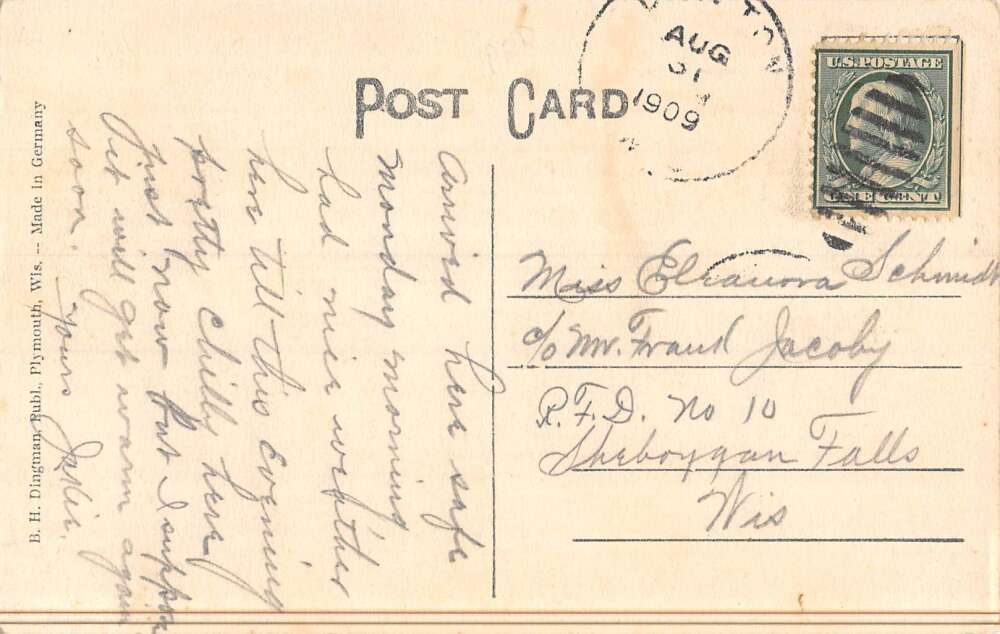 POST CARD
AUG
31
1909
U.S. POSTAGE
ONE CENT 1
Miss Eleanora Schmidt
c/o Mr. Frank Jacoby
R.F.D. No 10
Sheboygan Falls
Wis
Arrived here safe
Monday morning
had nice weather
here till this evening
pretty chilly here
just now but I suppose
it will get warm again
soon. Yours
B. H. Dingman, Publ., Plymouth, Wis. -- Made in Germany